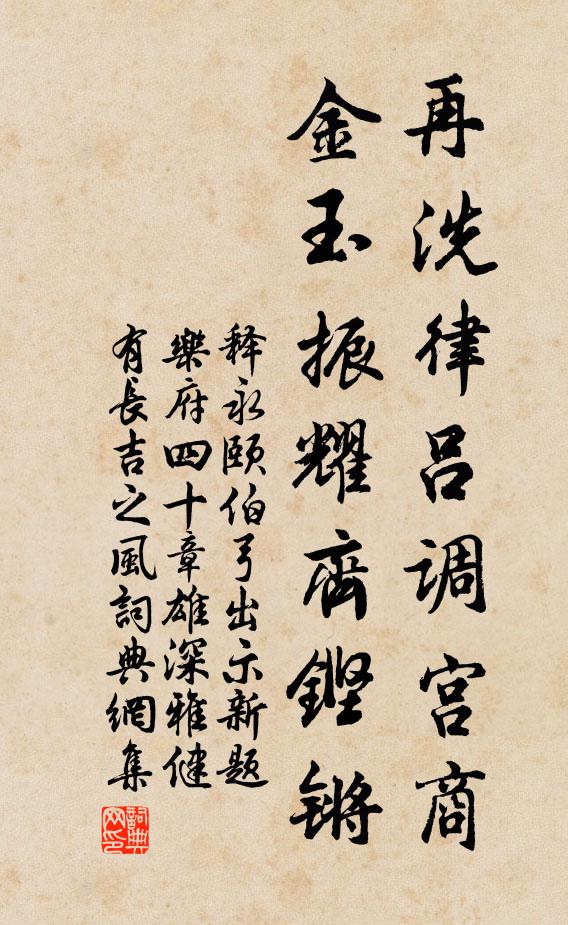 再洗律吕调宫商
金玉振耀齊鏗锵
释永颐伯弓出示新题
樂府四十章雄深雅健
有長吉之風詞典網集
詞典网印